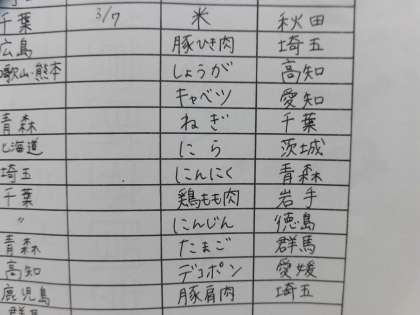 千葉 3/7 米 秋田
広島 豚ひき肉 埼玉
和歌山・熊本 しょうが 高知
キャベツ 愛知
青森 ねぎ 千葉
北海道 にら 茨城
埼玉 にんにく 青森
千葉 鶏もも肉 岩手
〃 にんじん 徳島
青森 たまご 群馬
高知 デコポン 愛媛
鹿児島 豚肩肉 埼玉
群馬